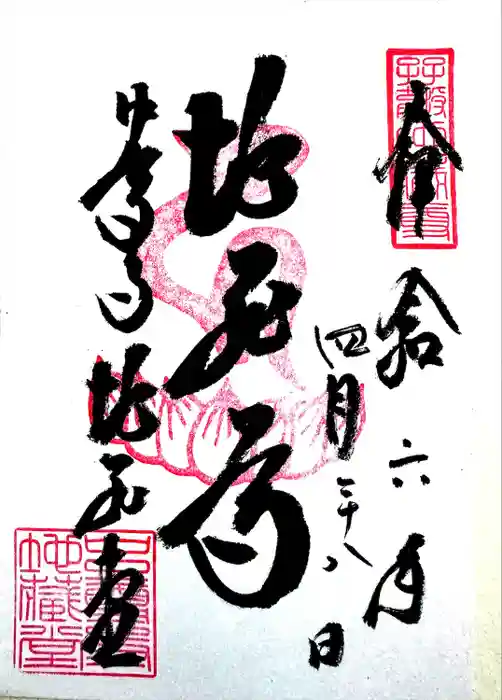 奉拝
令和六年
四月二十八日
地蔵尊
中尊寺 地蔵堂